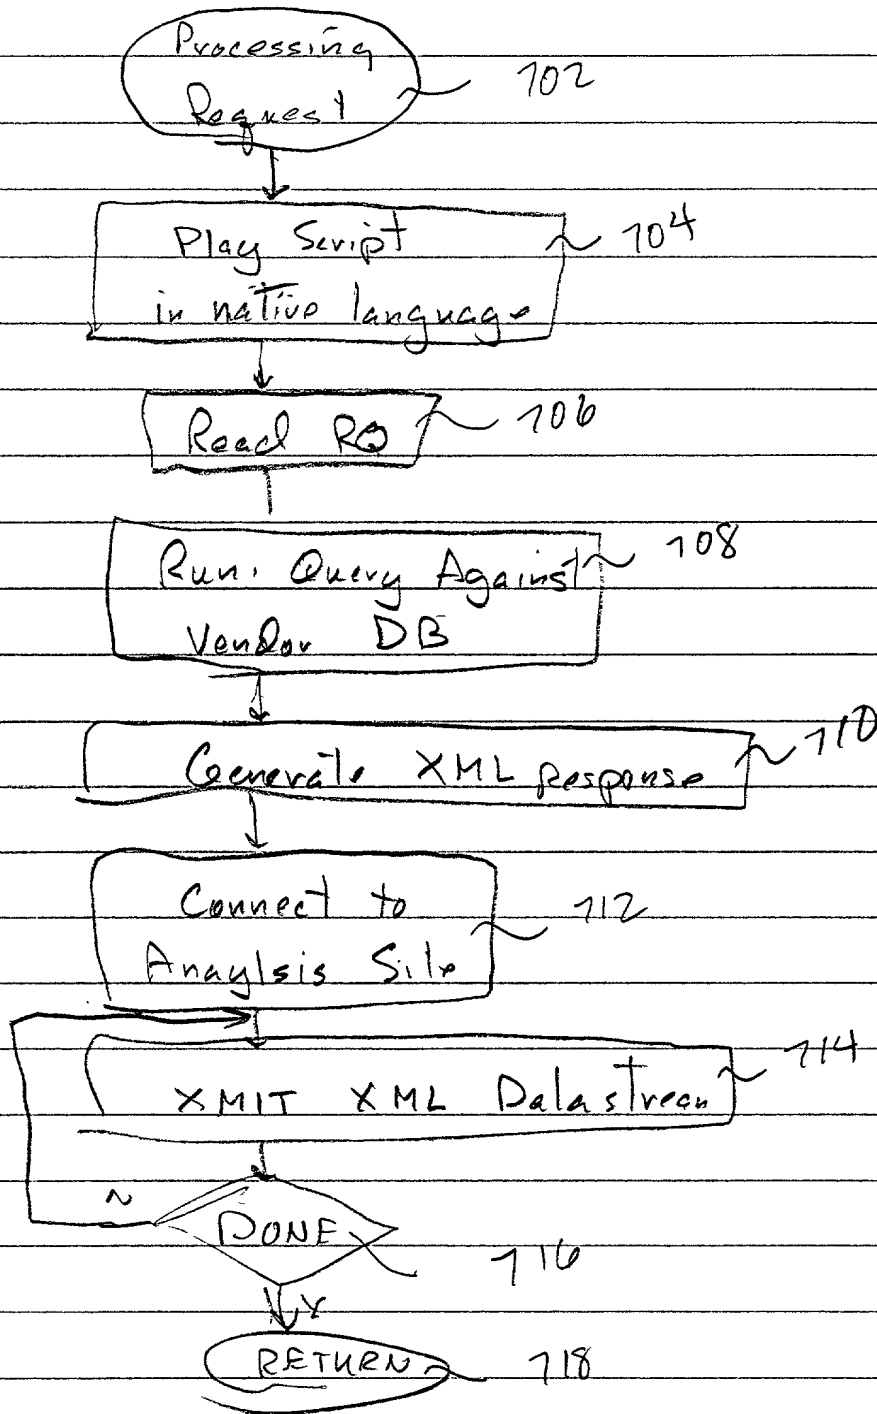 Processing
Request
702
Play Script
in native language
704
Read RQ
706
Run Query Against
Vendor DB
708
Generate XML Response
710
Connect to
Anaylsis Site
712
XMIT XML Datastream
714
N
DONE
716
Y
RETURN
718